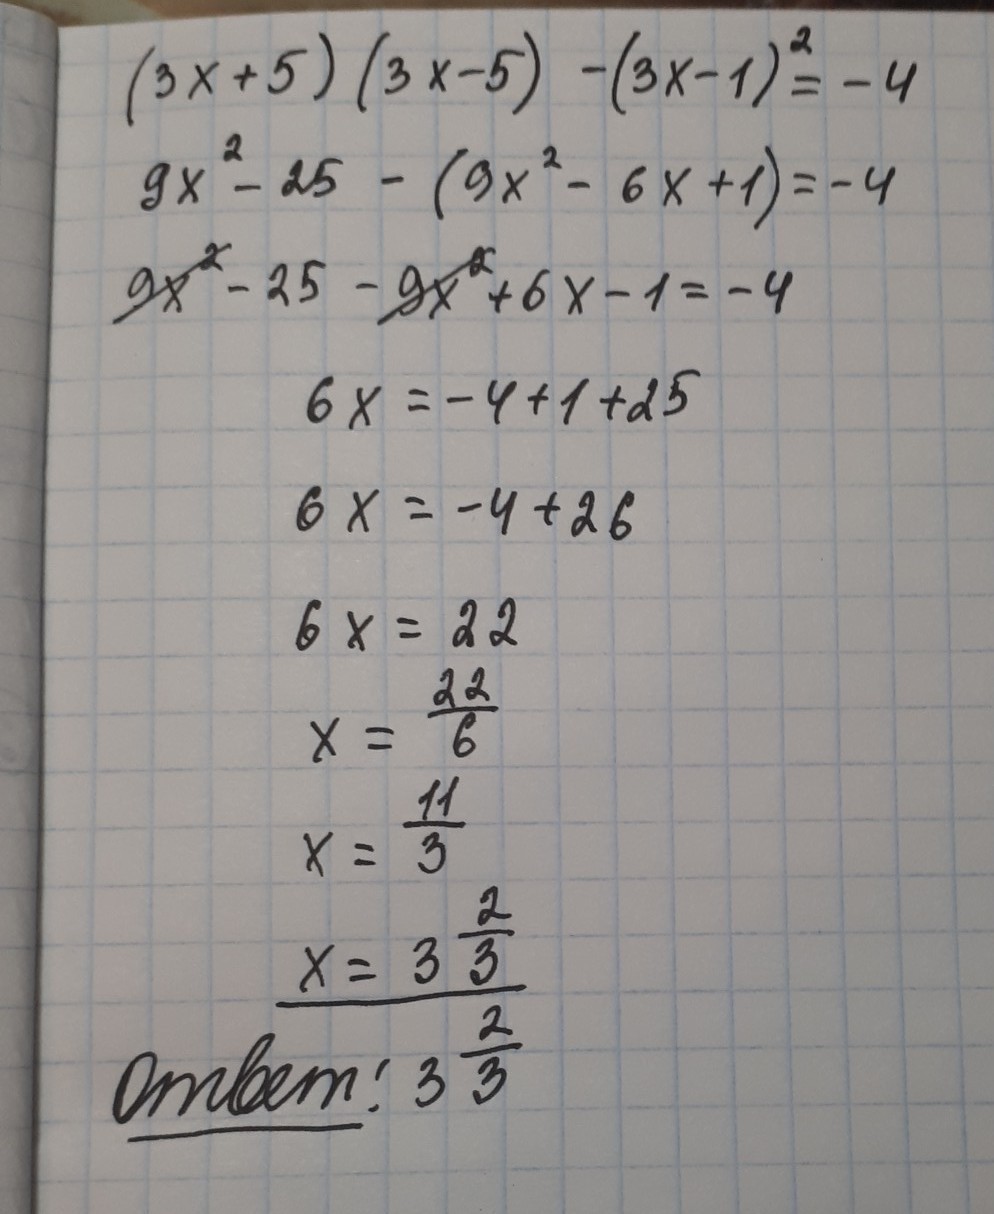 (3x+5)(3x-5) -(3x-1)²= -4
9x²- 25 - (9x²- 6x+1)=-4
9x²- 25 -9x²+6x-1=-4
6x=-4+1+25
6x=-4+26
6x=22
x= 22/6
x= 11/3
x= 3 2/3
Ответ: 3 2/3